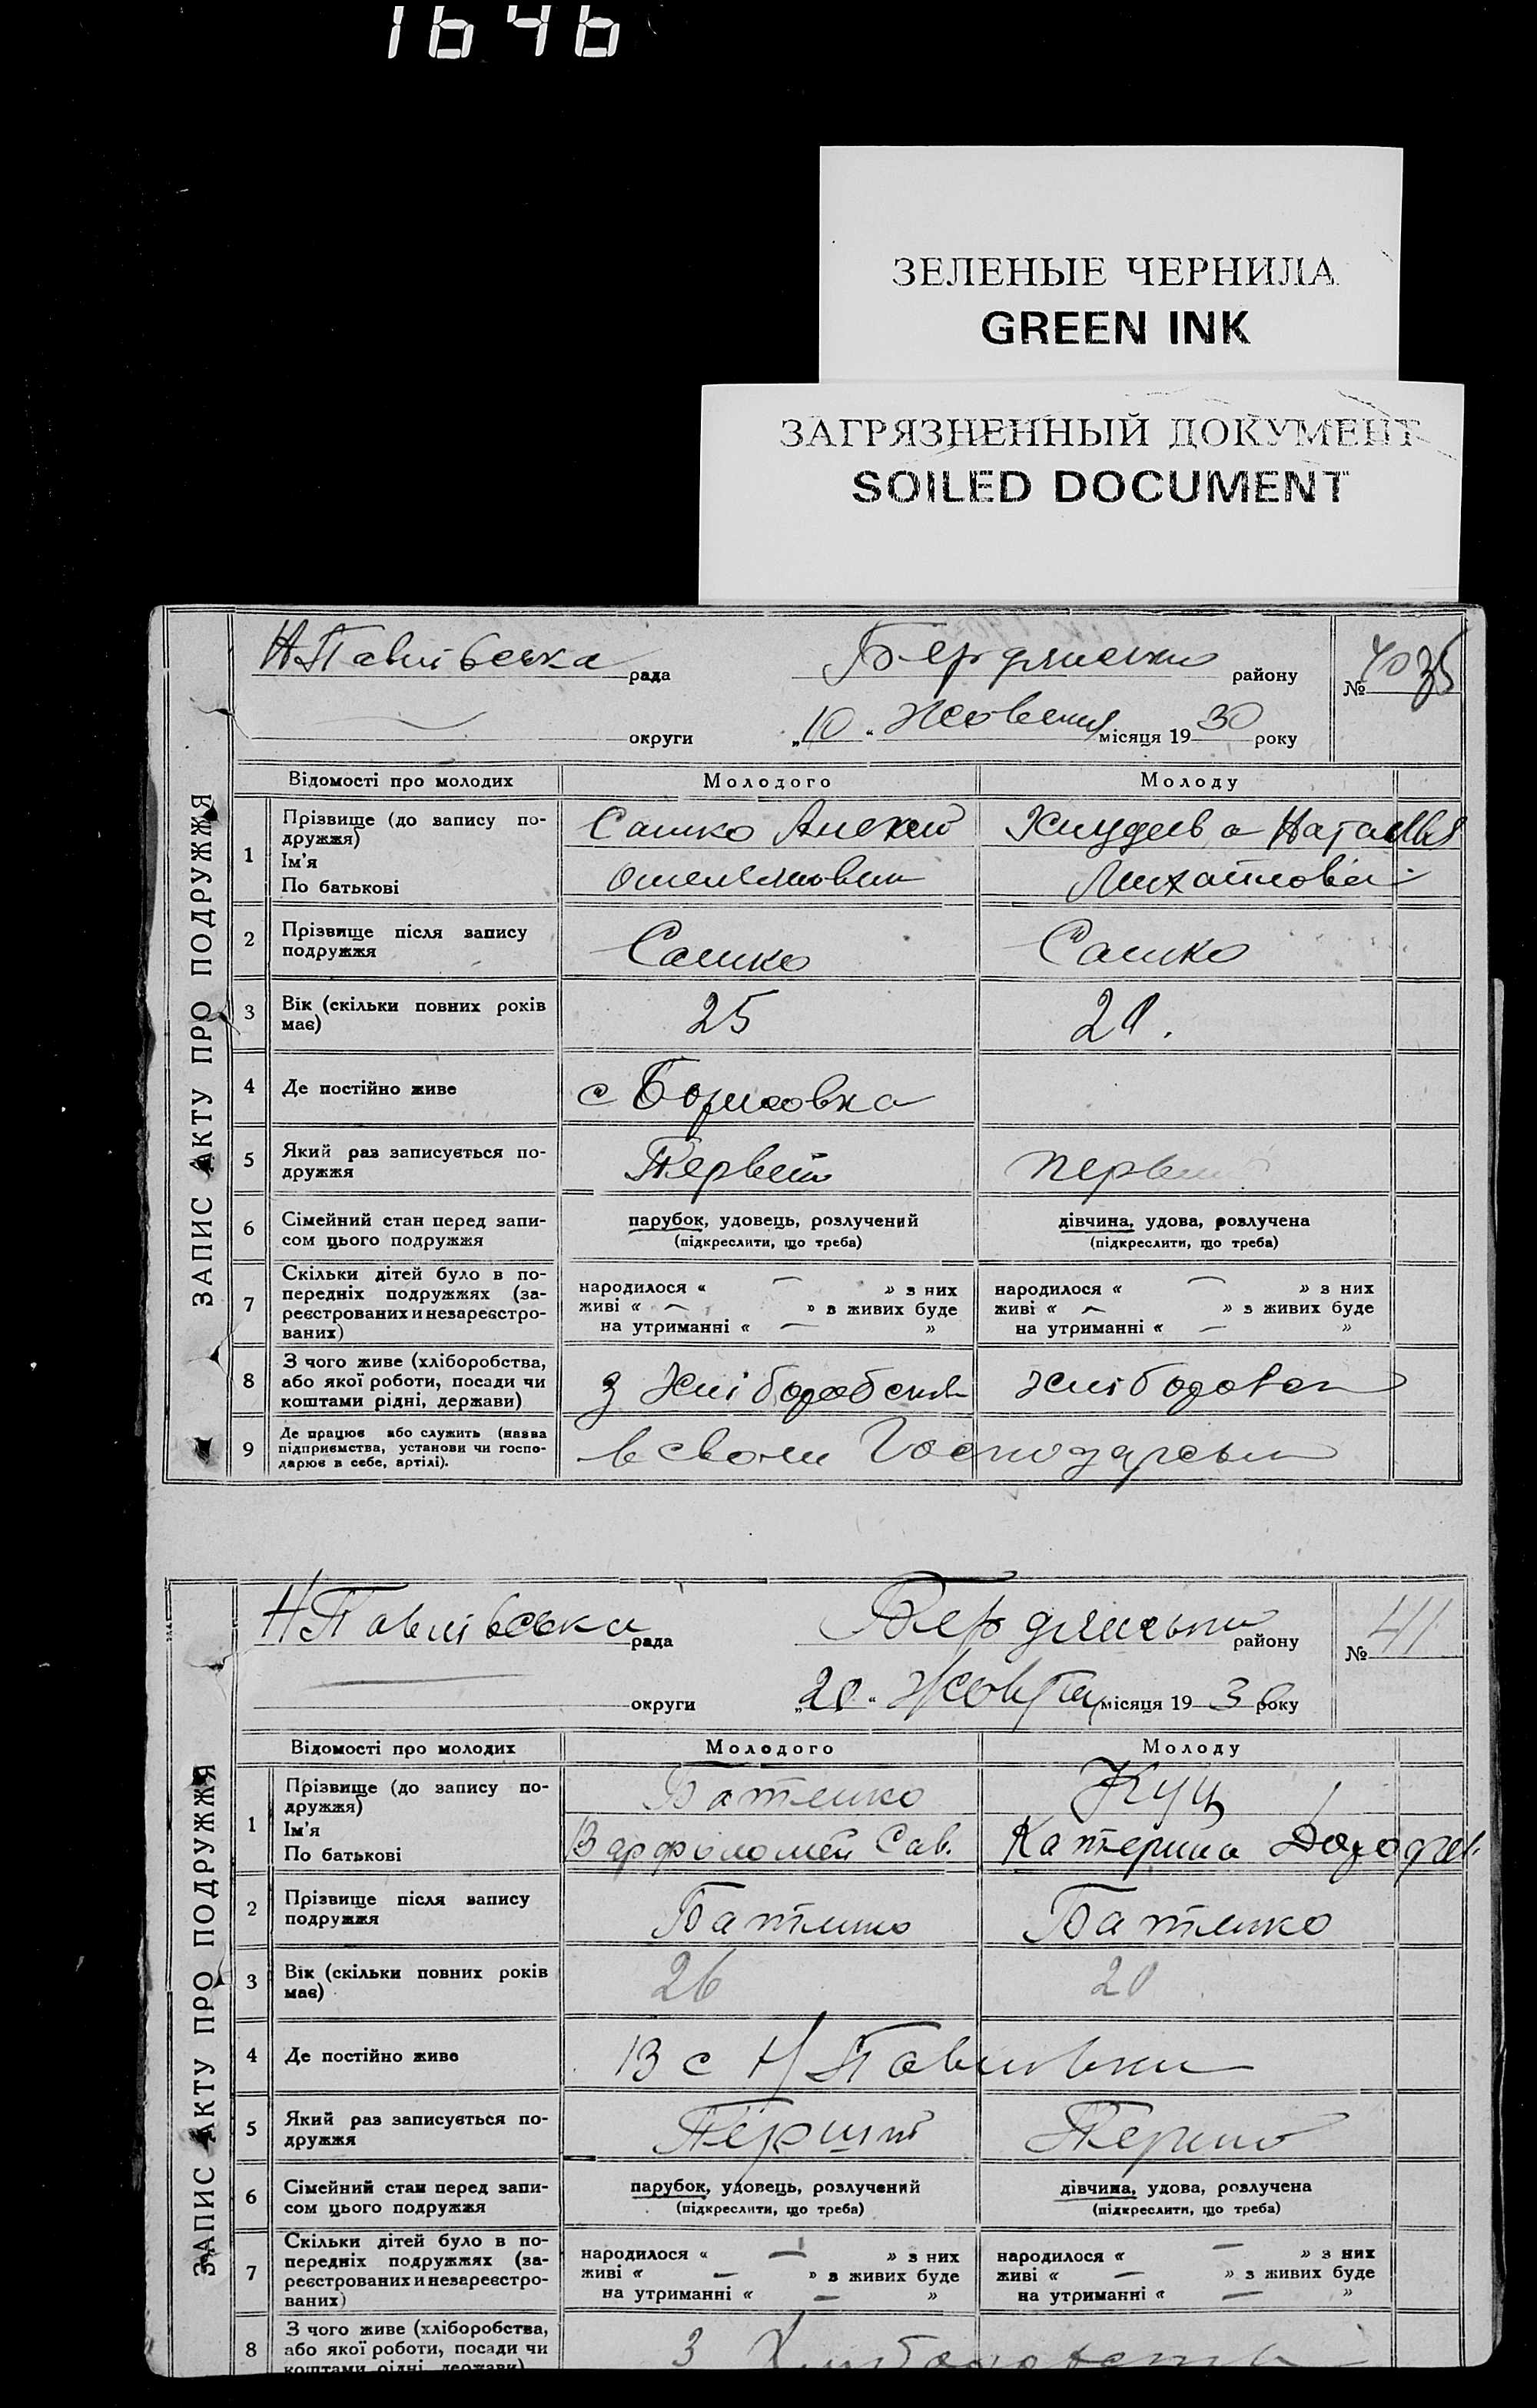 1646
ЗЕЛЕНЫЕ ЧЕРНИЛА
GREEN INK
ЗАГРЯЗНЕННЫЙ ДОКУМЕНТ
SOILED DOCUMENT
ЗАПИС АКТУ ПРО ПОДРУЖЖЯ
Н Павлівська рада Бердянськи району № 40
округи „10“ Жовтня місяця 1930 року
Відомості про молодих Молодого Молоду
1 Прізвище (до запису подружжя) Сашко Алексій Наталья
Ім’я
По батькові Михайлов
2 Прізвище після запису подружжя Сашко Сашко
3 Вік (скільки повних років має) 25 20.
4 Де постійно живе с Борисовка
5 Який раз записується подружжя Первый первый
6 Сімейний стан перед записом цього подружжя парубок, удовець, розлучений дівчина, удова, розлучена
(підкреслити, що треба) (підкреслити, що треба)
7 Скільки дітей було в попередніх подружжях (зареєстрованих и незареєстрованих) народилося « — » з них народилося « — » з них
живі « — » з живих буде живі « — » з живих буде
на утриманні « — » на утриманні « — »
8 З чого живе (хліборобства, або якої роботи, посади чи коштами рідні, держави) з
9 Де працює або служить (назва підприємства, установи чи господарює в себе, артілі). в своем
ЗАПИС АКТУ ПРО ПОДРУЖЖЯ
Н Павлівська рада Бердянськи району № 41
округи „20“ Жовтня місяця 1930 року
Відомості про молодих Молодого Молоду
1 Прізвище (до запису подружжя) Батенко Куц
Ім’я Варфоломей Сав. Катерина
По батькові
2 Прізвище після запису подружжя Батенко Батенко
3 Вік (скільки повних років має) 26 20
4 Де постійно живе В с Н Павловки
5 Який раз записується подружжя Перший Перший
6 Сімейний стан перед записом цього подружжя парубок, удовець, розлучений дівчина, удова, розлучена
(підкреслити, що треба) (підкреслити, що треба)
7 Скільки дітей було в попередніх подружжях (зареєстрованих и незареєстрованих) народилося « — » з них народилося « — » з них
живі « — » з живих буде живі « — » з живих буде
на утриманні « — » на утриманні « — »
8 З чого живе (хліборобства, або якої роботи, посади чи коштами рідні, держави) З